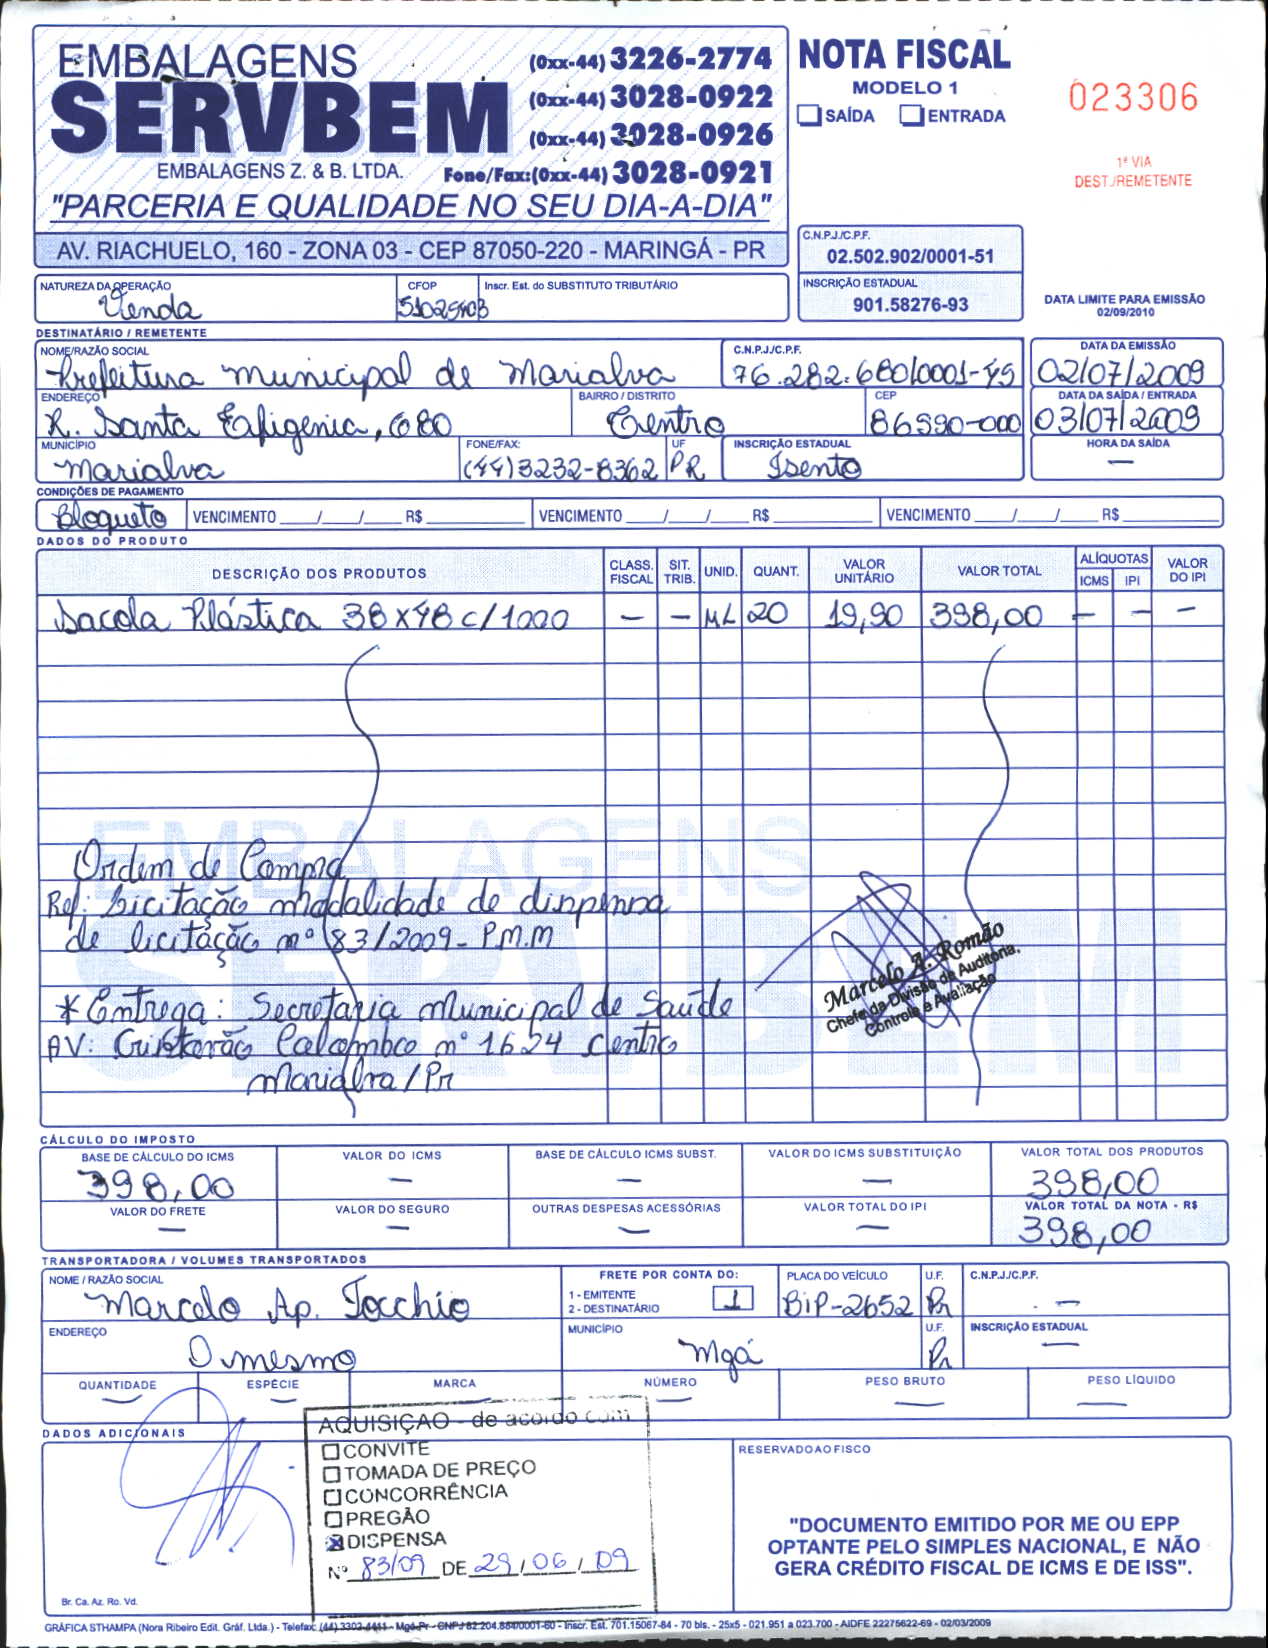 EMBALAGENS
SERVBEM
EMBALAGENS Z. & B. LTDA.
(0xx-44) 3226-2774
(0xx-44) 3028-0922
(0xx-44) 3028-0926
Fone/Fax:(0xx-44) 3028-0921
"PARCERIA E QUALIDADE NO SEU DIA-A-DIA"
AV. RIACHUELO, 160 - ZONA 03 - CEP 87050-220 - MARINGÁ - PR
NOTA FISCAL
MODELO 1
SAÍDA ENTRADA
023306
1ª VIA
DEST./REMETENTE
C.N.P.J./C.P.F.
02.502.902/0001-51
INSCRIÇÃO ESTADUAL
901.58276-93
DATA LIMITE PARA EMISSÃO
02/09/2010
NATUREZA DA OPERAÇÃO CFOP Inscr. Est. do SUBSTITUTO TRIBUTÁRIO
Venda
DESTINATÁRIO / REMETENTE
NOME/RAZÃO SOCIAL C.N.P.J./C.P.F. DATA DA EMISSÃO
Prefeitura municipal de Marialva 76.282.680/0001-45 02/07/2009
ENDEREÇO BAIRRO / DISTRITO CEP DATA DA SAÍDA / ENTRADA
R. Santa Eafigenia, 680 Centro 86990-000 03/07/2009
MUNICÍPIO FONE/FAX: UF INSCRIÇÃO ESTADUAL HORA DA SAÍDA
Marialva (44)3232-8362 PR Isento —
CONDIÇÕES DE PAGAMENTO
Bloqueto VENCIMENTO ___/___/___ R$ ________ VENCIMENTO ___/___/___ R$ ________ VENCIMENTO ___/___/___ R$ ________
DADOS DO PRODUTO
DESCRIÇÃO DOS PRODUTOS CLASS. FISCAL SIT. TRIB. UNID. QUANT. VALOR UNITÁRIO VALOR TOTAL ALÍQUOTAS ICMS IPI VALOR DO IPI
Sacola Plástica 38x48 c/1000 — — ML 20 19,90 398,00 — — —
EMBALAGENS
SERVBEM
Ordem de Compra
Ref: Licitação modalidade de dispensa
de licitação nº 83/2009- P.M.M
* Entrega: Secretaria Municipal de Saúde
AV: Cristovão Colombco nº 1624 centro
Marialva/Pr
Marcelo A. Romão
Chefe da Divisão de Auditoria,
Controle e Avaliação
CÁLCULO DO IMPOSTO
BASE DE CÁLCULO DO ICMS VALOR DO ICMS BASE DE CÁLCULO ICMS SUBST. VALOR DO ICMS SUBSTITUIÇÃO VALOR TOTAL DOS PRODUTOS
398,00 — — — 398,00
VALOR DO FRETE VALOR DO SEGURO OUTRAS DESPESAS ACESSÓRIAS VALOR TOTAL DO IPI VALOR TOTAL DA NOTA - R$
— — — — 398,00
TRANSPORTADORA / VOLUMES TRANSPORTADOS
NOME / RAZÃO SOCIAL FRETE POR CONTA DO: PLACA DO VEÍCULO U.F. C.N.P.J./C.P.F.
1 - EMITENTE
2 - DESTINATÁRIO
Marcelo Ap. Tocchio 1 BiP-2652 Pr —
ENDEREÇO MUNICÍPIO U.F. INSCRIÇÃO ESTADUAL
O mesmo Mgá Pr —
QUANTIDADE ESPÉCIE MARCA NÚMERO PESO BRUTO PESO LÍQUIDO
— — — — —
DADOS ADICIONAIS
AQUISIÇÃO - de acordo com
CONVITE
TOMADA DE PREÇO
CONCORRÊNCIA
PREGÃO
DISPENSA
Nº 83/09 DE 29/06/09
Br. Ca. Az. Ro. Vd.
RESERVADO AO FISCO
"DOCUMENTO EMITIDO POR ME OU EPP
OPTANTE PELO SIMPLES NACIONAL, E NÃO
GERA CRÉDITO FISCAL DE ICMS E DE ISS".
GRÁFICA STHAMPA (Nora Ribeiro Edit. Gráf. Ltda.) - Telefax: (44) 3302-4411 - Mgá-Pr - CNPJ 82.204.884/0001-60 - Inscr. Est. 701.15067-84 - 70 bls. - 25x5 - 021.951 a 023.700 - AIDFE 22275622-69 - 02/03/2009